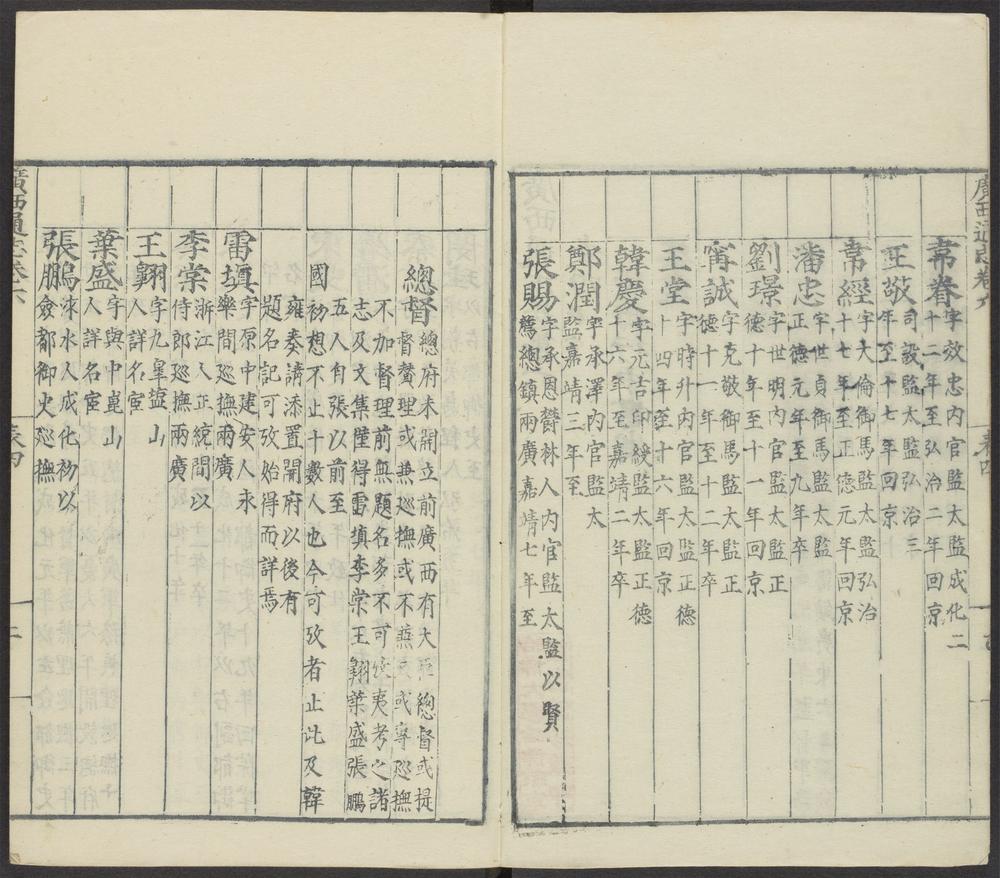 廣西通志卷六
韋眷字效忠內官監太監成化二
十二年至弘治二年回京
王敬司設監太監弘治三
年至十七年回京
韋經字大倫御馬監太監弘治
十七年至正德元年回京
潘忠字世貞御馬監太監
正德元年至九年卒
劉璟字世明內官監太監正
德十年至十一年回京
甯誠字克敬御馬監太監正
德十一年至十二年卒
王堂字時升內官監太監正德
十四年至十六年卒
韓慶字元吉印綬監太監正德
十六年至嘉靖二年卒
鄭潤字承澤內官監太
監嘉靖三年至
張賜字承恩欝林人內官監太監以賢
舊總鎮兩廣嘉靖七年至
總督總府未開立前廣西有大征總督或提
督贊理或兼巡撫或不兼或專巡撫
不加督理前無題名多不可攷夷考之諸
志及文集僅得雷填李棠王翺葉盛張鵬
五人自張以前至
國初想不止十數人也今可攷者止此及韓
雍奏請添置開府以後有
題名記可攷始得而詳焉
雷填字原中建安人永
樂間巡撫兩廣
李棠浙江人正統間以
侍郎巡撫兩廣
王翺字九臯鹽山
人詳名宦
葉盛字與中崑山
人詳名宦
張鵬淶水人成化初以
僉都御史巡撫
廣西通志卷六
表四
二